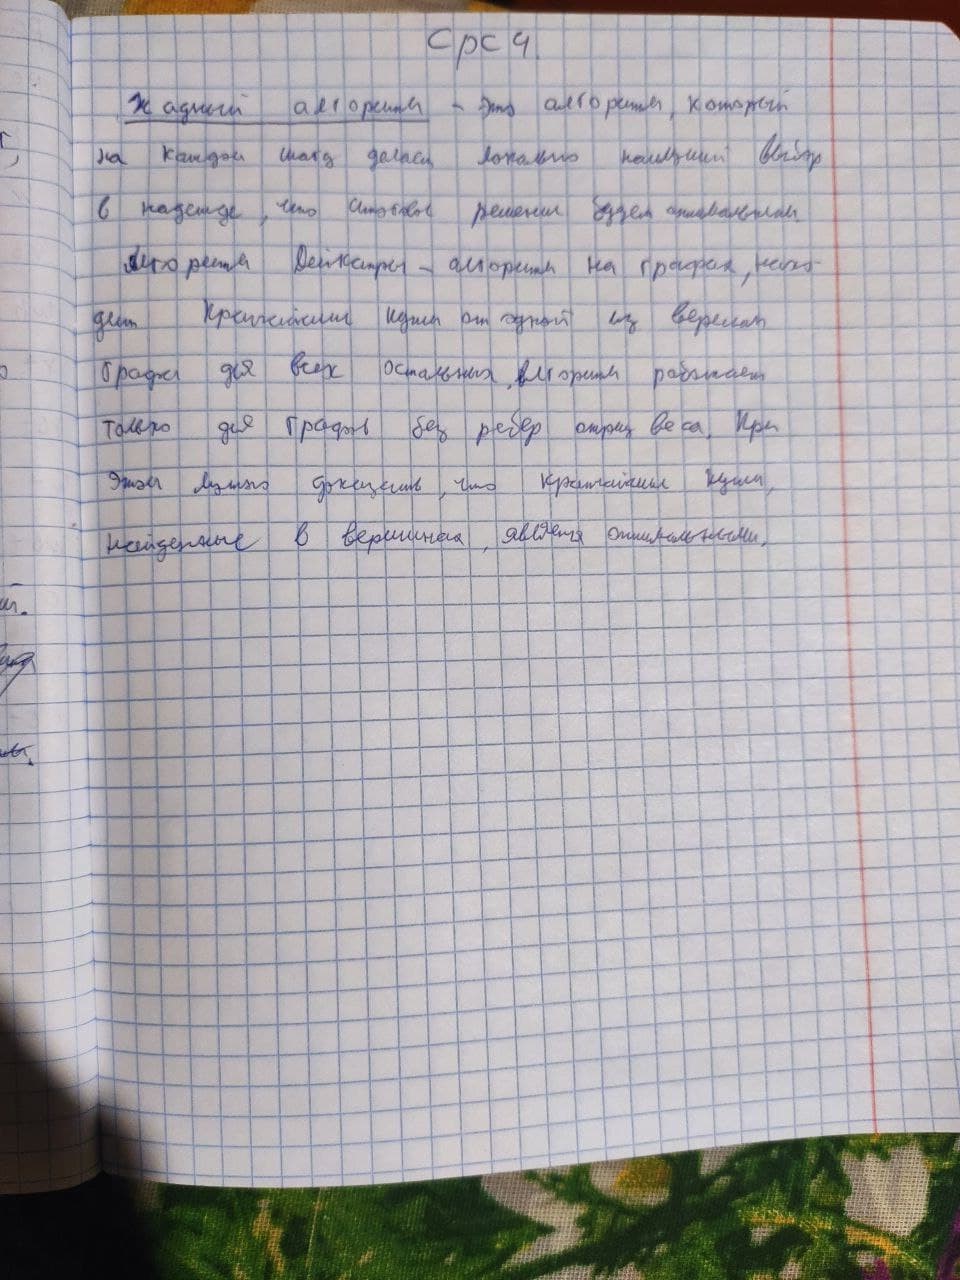 Срс 4.
Жадный алгоритм – это алгоритм, который
на каждом шагу делает локально наилучший выбор
в надежде, что итоговое решение будет оптимальным.
Алгоритм Дейкстры – алгоритм на графах, нахо-
дит кратчайшие пути от одной из вершин
графа для всех остальных, алгоритм работает
только для графов без рёбер отриц веса. При
этом нужно доказать, что кратчайшие пути,
найденные в вершинах, является оптимальными.